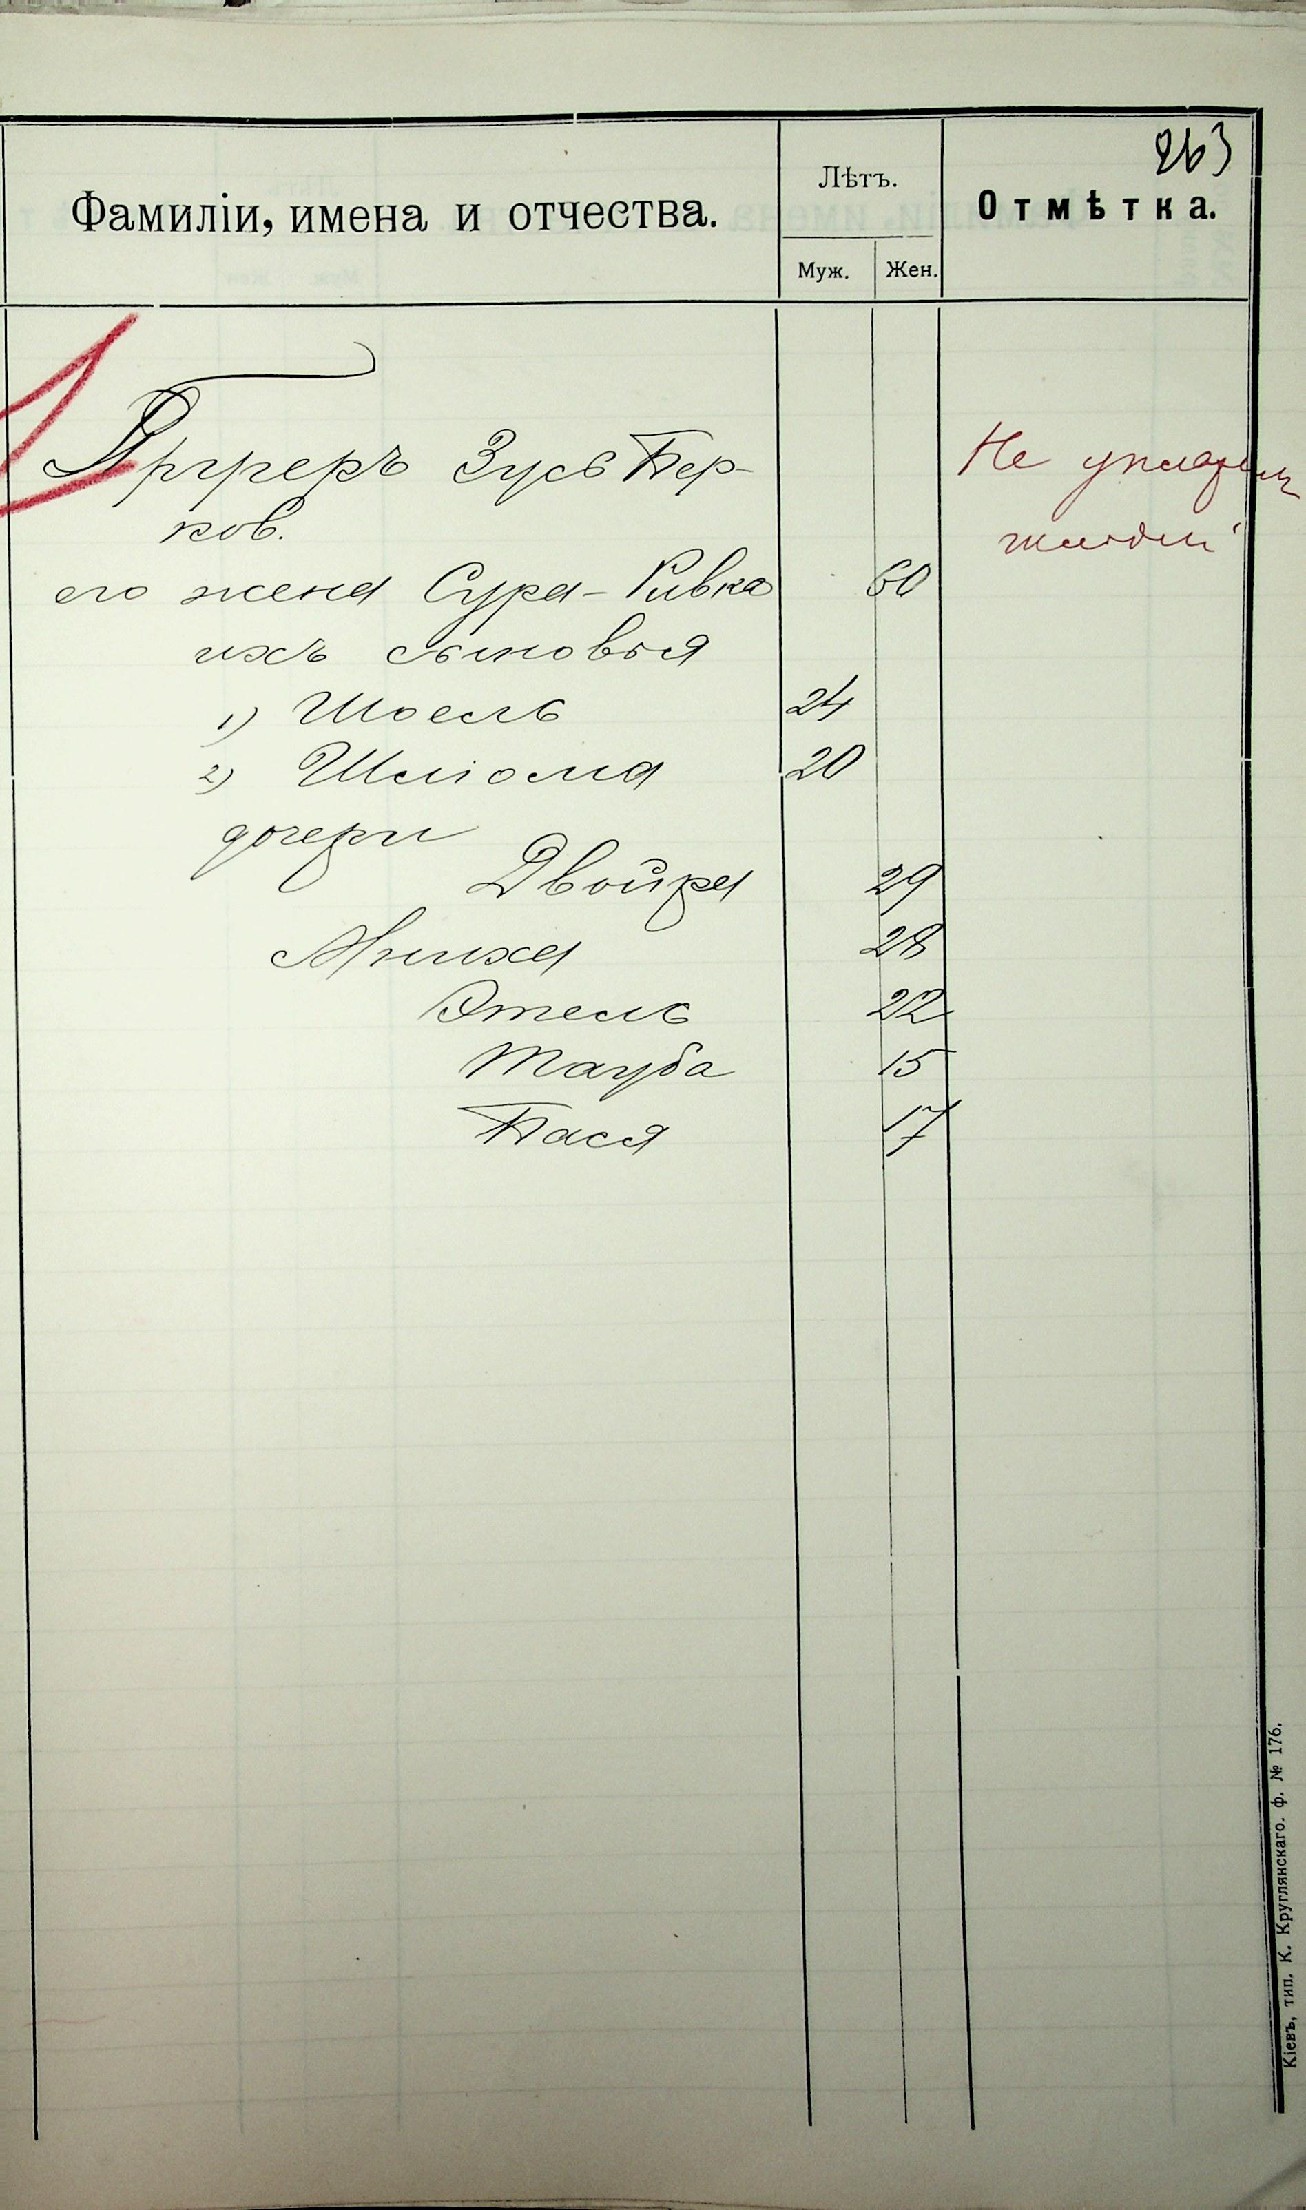 263
Фамиліи, имена и отчества.
Лѣтъ.
Отмѣтка.
Муж.
Жен.
Зусь Бер-
ков.
его жена Сура-Ривка 60
ихъ сыновья
1) Шоель 24
2) Шліома 20
дочери
Двойра 29
28
Этель 22
Тауба 15
Бася 17
Не
Кіевъ, тип. К. Круглянскаго. ф. № 176.